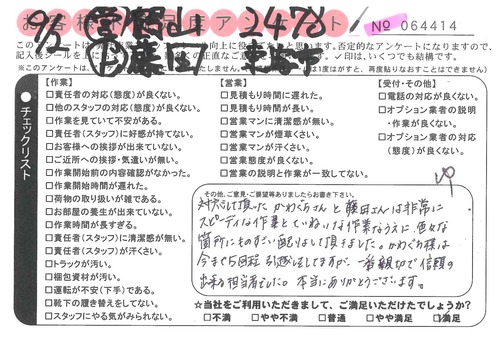 お客様満足度アンケート
№ 064414
9/2
2478
【作業】
□責任者の対応(態度)が良くない。
□他のスタッフの対応(態度)が良くない。
□作業を見ていて不安がある。
□責任者(スタッフ)に好感が持てない。
□お客様への挨拶が出来ていない。
□ご近所への挨拶・気遣いが無い。
□作業開始前の内容確認がなかった。
□作業開始時間が遅れた。
□荷物の取り扱いが雑である。
□お部屋の養生が出来ていない。
□作業時間が長すぎる。
□責任者(スタッフ)に清潔感が無い。
□責任者(スタッフ)が汗くさい。
□トラックが汚い。
□梱包資材が汚い。
□運転が不安(下手)である。
□靴下の履き替えをしてない。
□スタッフにやる気がみられない。
【営業】
□見積もりに遅れた。
□見積もり時間が長い。
□営業マンに清潔感が無い。
□営業マンが煙草くさい。
□営業マンが汗くさい。
□営業態度が良くない。
□営業の説明と作業が一致してない。
【受付・その他】
□電話の対応が良くない。
□オプション業者の説明・作業が良くない。
□オプション業者の対応(態度)が良くない。
●チェックリスト
その他、ご意見・ご要望等ありましたらお書き下さい。
対応して頂いた かわぐちさんと 藤田さんは非常に
スピーディな作業とていねいな作業なうえに 色々な
箇所にまで 気い配りをして頂きました。かわぐち様は
今まで5回程 引越をしてますが、一番親切で信頼の
出来る担当者でした。本当にありがとうございます。
☆当社をご利用いただきまして、ご満足いただけたでしょうか?
□不満 □やや不満 □普通 □やや満足 □満足